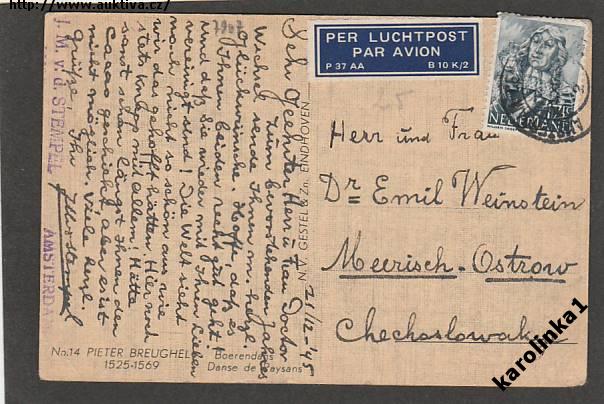 http://www.auktiva.cz/
7907
PER LUCHTPOST
PAR AVION
P 37 AA B 10 K/2
NEDERLAND
25
Herr und Frau
Dr Emil Weinstein
Meerisch-Ostrow
Chechoslowakei
21/12-'45
Sehr Geehrter Herr u Frau Doctor
Zum bevorstehenden Jahres
Wechsel sende Ihnen m. herzl.
Glückwünsche. Hoffe, daß es
Ihnen beiden recht gut geht
und daß Sie wieder mit Ihren Lieben
vereinigt sind! Die Welt sieht
noch nicht so schön aus wie
wir das gehofft hatten. Hier noch
stets knapp mit allem! Hätte
sonst schon längst Ihnen den
Cacao geschickt, aber es ist
nicht möglich. Viele herzl.
Grüße Ihr
J.M. v.d. STEMPEL AMSTERDAM
N.V. GESTEL & Zn. EINDHOVEN
No. 14 PIETER BREUGHEL Boerendans
1525-1569 Danse de Paysans
karolinka1